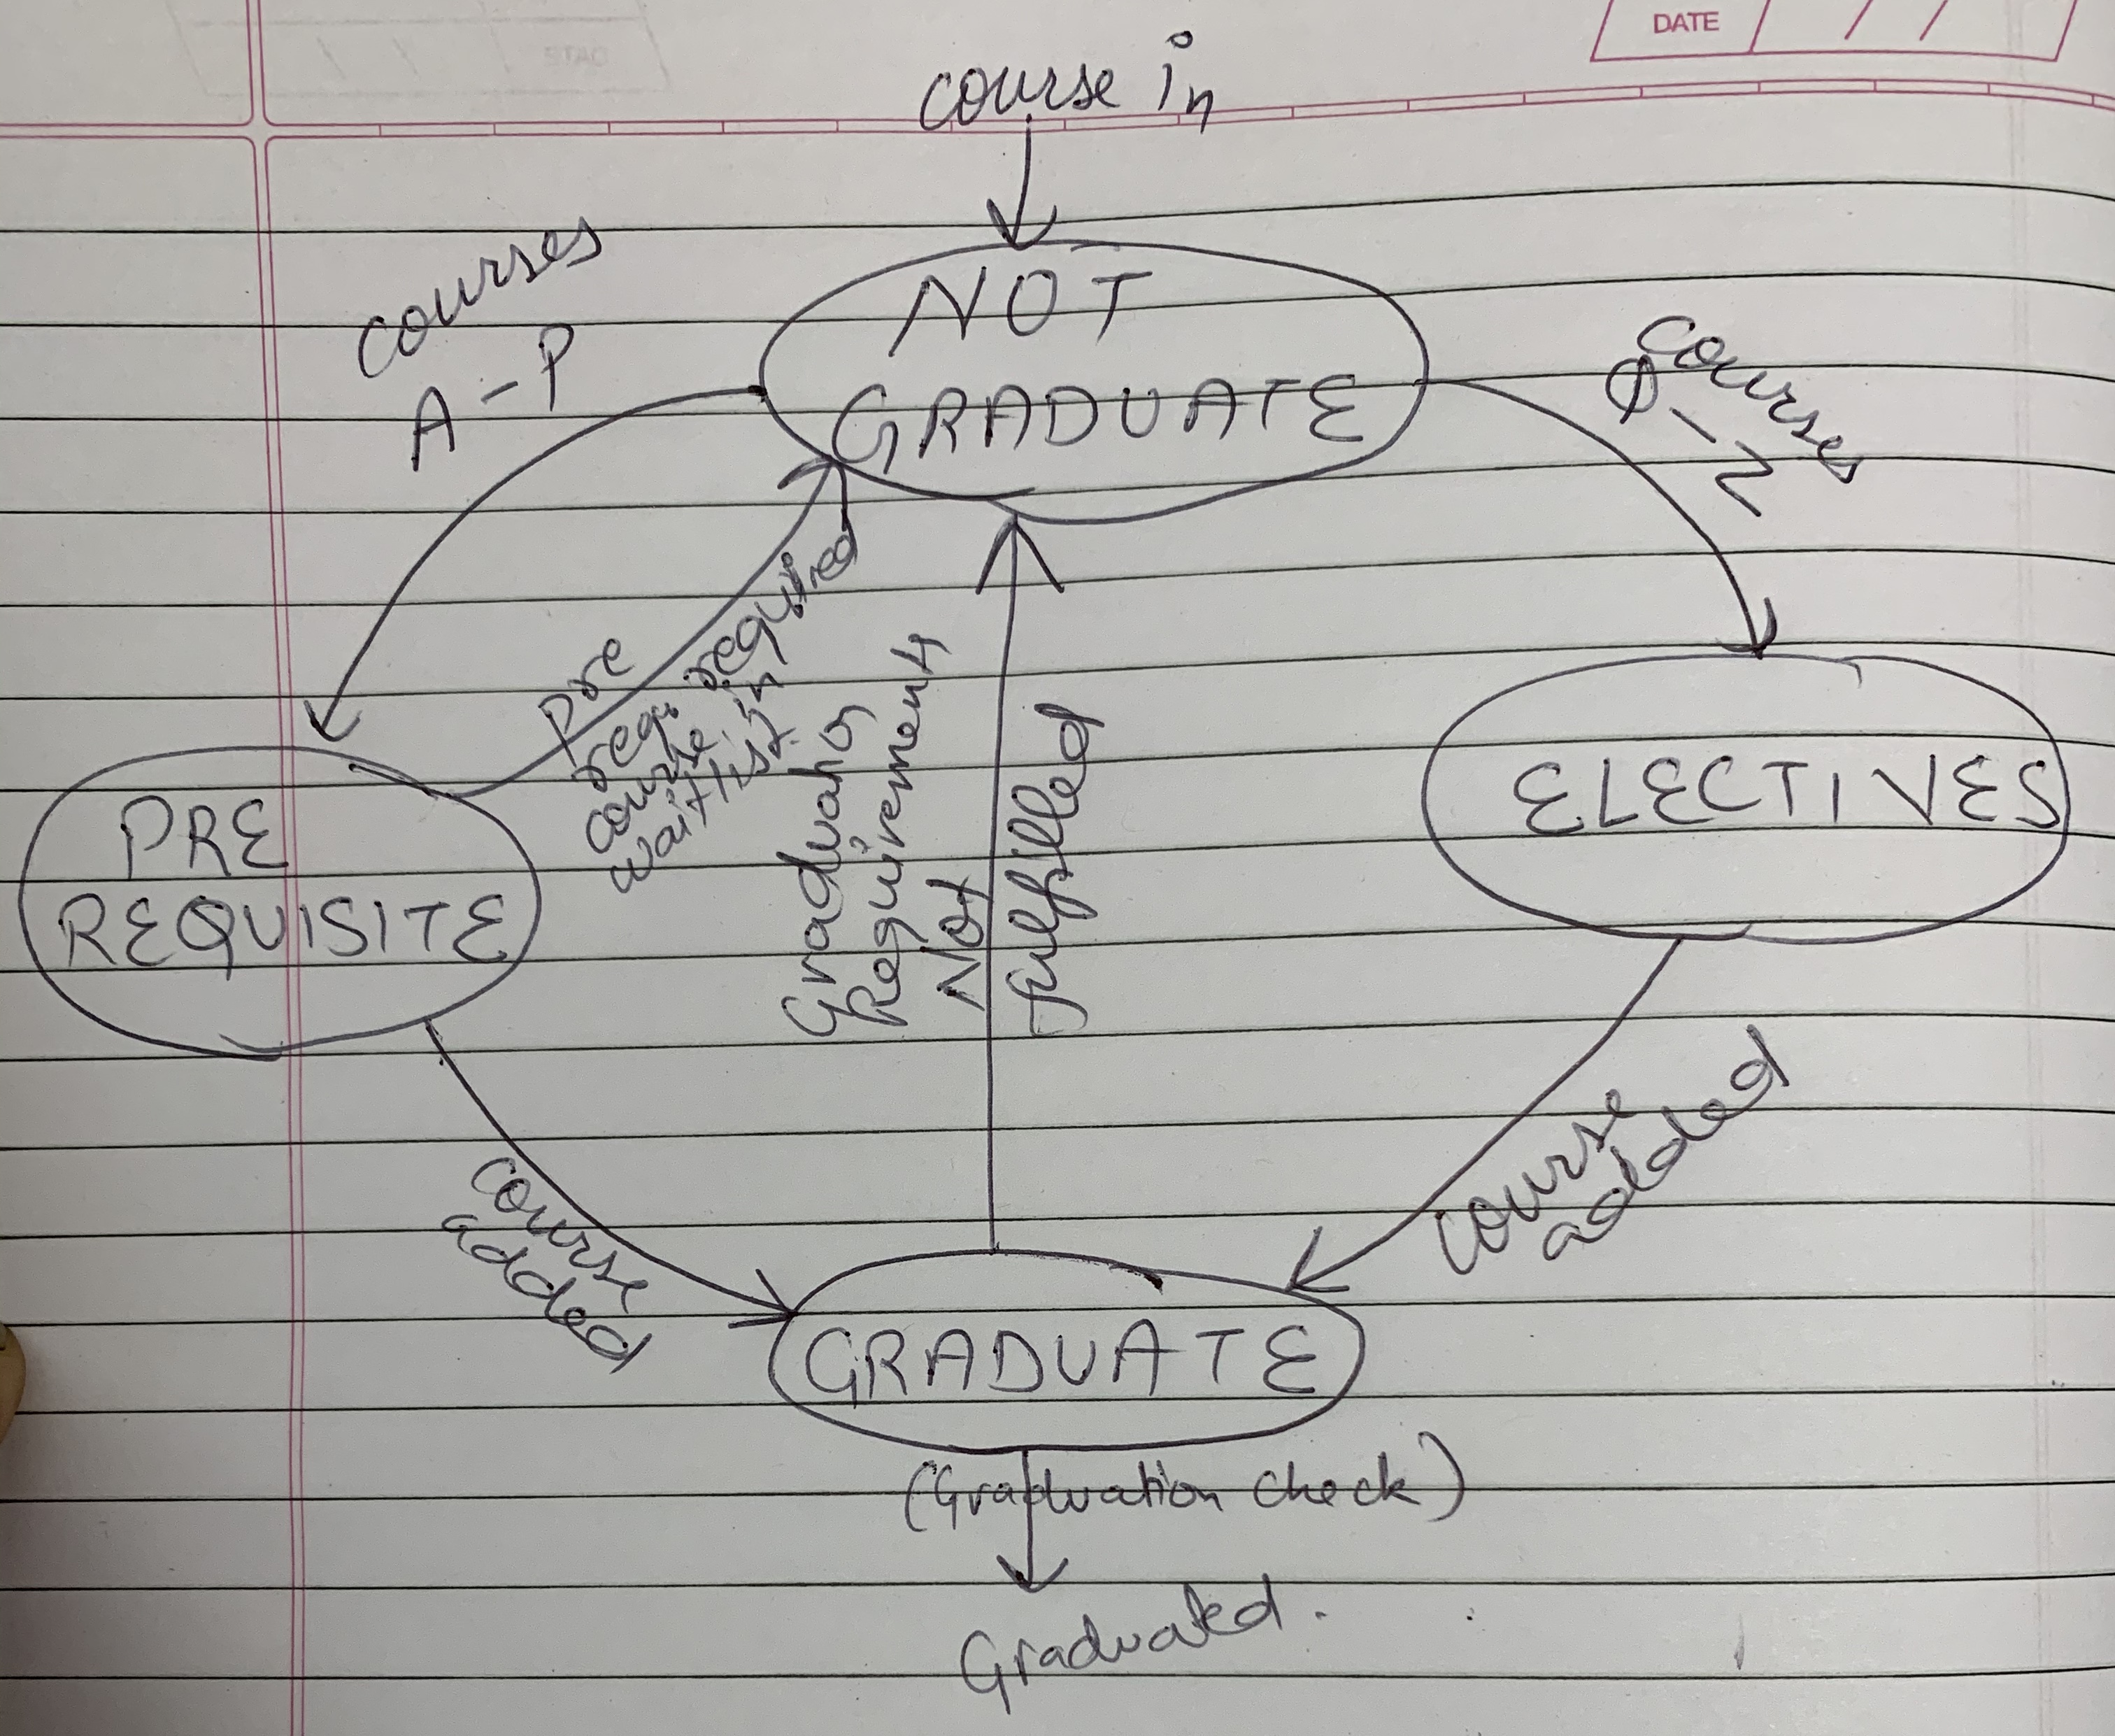 DATE / /
course in
NOT
GRADUATE
courses
A-P
courses
Q-Z
pre
requ required
course in
waitlist
Graduation
Requirements
Not
fulfilled
PRE
REQUISITE
ELECTIVES
course
added
course
added
GRADUATE
(Graduation check)
Graduated.